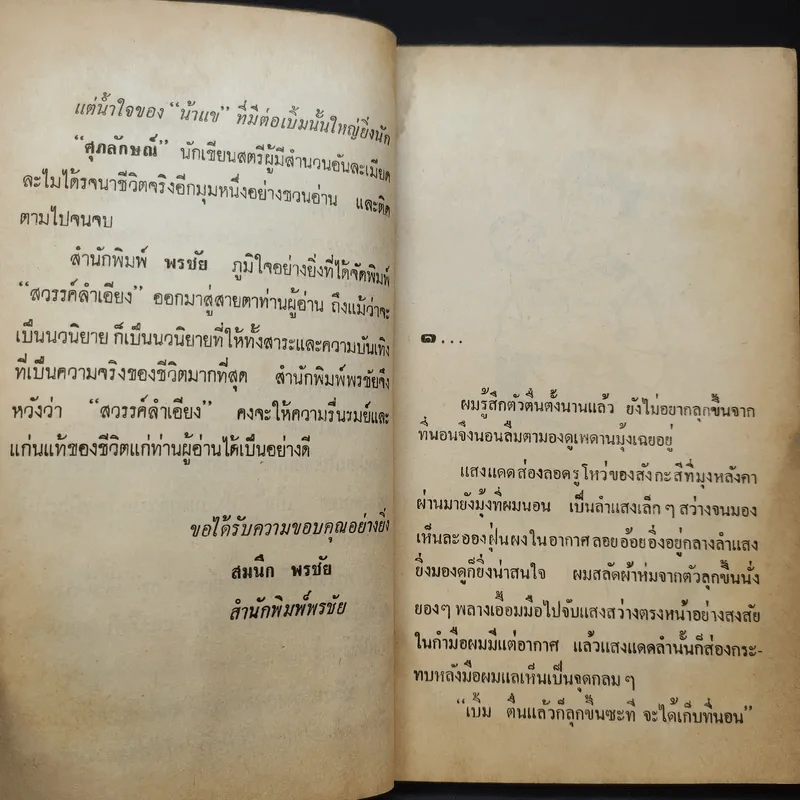 แต่น้ำใจของ “น้าแข” ที่มีต่อเบิ้มนั้นใหญ่ยิ่งนัก
“สุภลักษณ์” นักเขียนสตรีผู้มีสำนวนอันละเมียด
ละไมได้รจนาชีวิตจริงอีกมุมหนึ่งอย่างชวนอ่าน และติด
ตามไปจนจบ
สำนักพิมพ์ พรชัย ภูมิใจอย่างยิ่งที่ได้จัดพิมพ์
“สวรรค์ลำเอียง” ออกมาสู่สายตาท่านผู้อ่าน ถึงแม้ว่าจะ
เป็นนวนิยาย ก็เป็นนวนิยายที่ให้ทั้งสาระและความบันเทิง
ที่เป็นความจริงของชีวิตมากที่สุด สำนักพิมพ์พรชัยจึง
หวังว่า “สวรรค์ลำเอียง” คงจะให้ความรื่นรมย์และ
แก่นแท้ของชีวิตแก่ท่านผู้อ่านได้เป็นอย่างดี
ขอได้รับความขอบคุณอย่างยิ่ง
สมนึก พรชัย
สำนักพิมพ์พรชัย
๑...
ผมรู้สึกตัวตื่นตั้งนานแล้ว ยังไม่อยากลุกขึ้นจาก
ที่นอนจึงนอนลืมตามองดูเพดานมุ้งเฉยอยู่
แสงแดดส่องลอดรูโหว่ของสังกะสีที่มุงหลังคา
ผ่านมายังมุ้งที่ผมนอน เป็นลำแสงเล็ก ๆ สว่างจนมอง
เห็นละอองฝุ่นผงในอากาศลอยอ้อยอิ่งอยู่กลางลำแสง
ยิ่งมองดูก็ยิ่งน่าสนใจ ผมสลัดผ้าห่มจากตัวลุกขึ้นนั่ง
ยอง ๆ พลางเอื้อมมือไปจับแสงสว่างตรงหน้าอย่างสงสัย
ในกำมือผมมีแต่อากาศ แล้วแสงแดดลำนั้นก็ส่องกระ-
ทบหลังมือผมแลเห็นเป็นจุดกลม ๆ
“เบิ้ม ตื่นแล้วก็ลุกขึ้นซะที จะได้เก็บที่นอน”